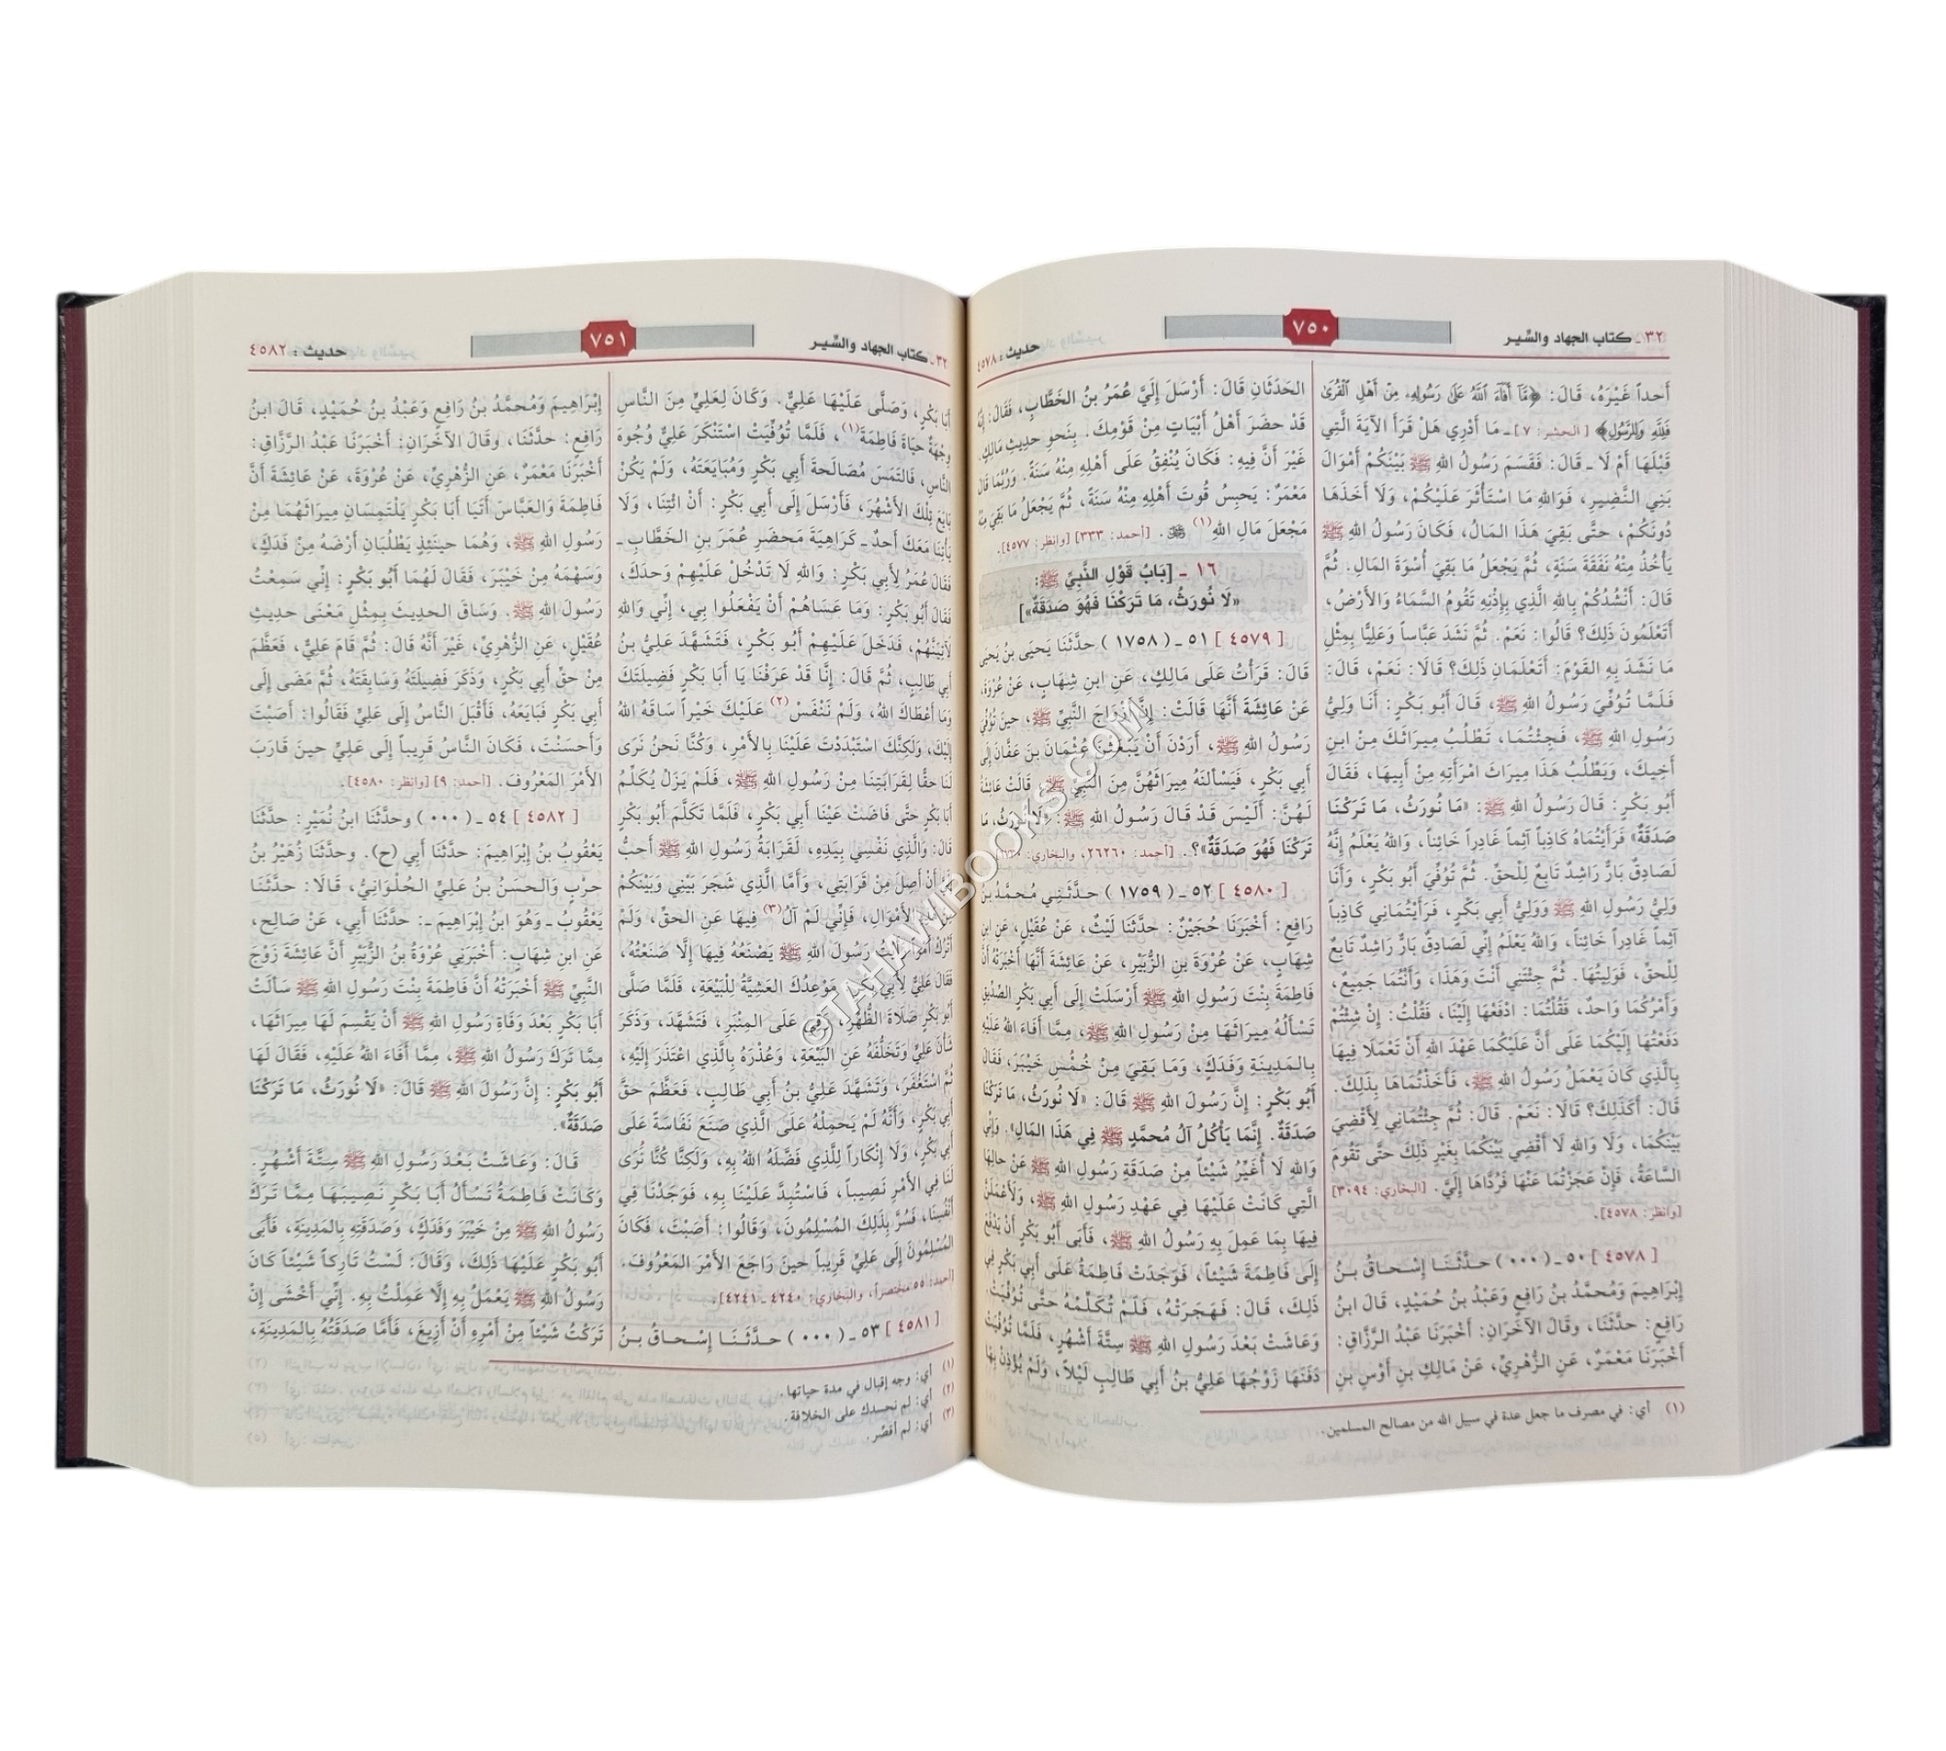 ٣٢ ـ كتاب الجهاد والسِّير
٧٥٠
حديث : ٤٥٧٨
أَحداً غَيْرَهُ، قَالَ: ﴿مَّآ أَفَآءَ ٱللَّهُ عَلَىٰ رَسُولِهِۦ مِنْ أَهْلِ ٱلْقُرَىٰ
فَلِلَّهِ وَلِلرَّسُولِ﴾ [الحشر: ٧] ـ مَا أَدْرِي هَلْ قَرَأَ الآيَةَ الَّتِي
قَبْلَهَا أَمْ لَا ـ قَالَ: فَقَسَمَ رَسُولُ اللهِ ﷺ بَيْنَكُمْ أَمْوَالَ
بَنِي النَّضِيرِ، فَوَاللهِ مَا اسْتَأْثَرَ عَلَيْكُمْ، وَلَا أَخَذَهَا
دُونَكُمْ، حَتَّى بَقِيَ هَذَا المَالُ، فَكَانَ رَسُولُ اللهِ ﷺ
يَأْخُذُ مِنْهُ نَفَقَةَ سَنَةٍ، ثُمَّ يَجْعَلُ مَا بَقِيَ أُسْوَةَ المَالِ. ثُمَّ
قَالَ: أَنْشُدُكُمْ بِاللهِ الَّذِي بِإِذْنِهِ تَقُومُ السَّمَاءُ وَالأَرْضُ،
أَتَعْلَمُونَ ذَلِكَ؟ قَالُوا: نَعَمْ. ثُمَّ نَشَدَ عَبَّاساً وَعَلِيًّا بِمِثْلِ
مَا نَشَدَ بِهِ القَوْمَ: أَتَعْلَمَانِ ذَلِكَ؟ قَالَا: نَعَمْ، قَالَ:
فَلَمَّا تُوُفِّيَ رَسُولُ اللهِ ﷺ، قَالَ أَبُو بَكْرٍ: أَنَا وَلِيُّ
رَسُولِ اللهِ ﷺ، فَجِئْتُمَا، تَطْلُبُ مِيرَاثَكَ مِنْ ابنِ
أَخِيكَ، وَيَطْلُبُ هَذَا مِيرَاثَ امْرَأَتِهِ مِنْ أَبِيهَا، فَقَالَ
أَبُو بَكْرٍ: قَالَ رَسُولُ اللهِ ﷺ: «مَا نُورَثُ، مَا تَرَكْنَا
صَدَقَةٌ» فَرَأَيْتُمَاهُ كَاذِباً آثِماً غَادِراً خَائِناً، وَاللهُ يَعْلَمُ إِنَّهُ
لَصَادِقٌ بَارٌّ رَاشِدٌ تَابِعٌ لِلْحَقِّ. ثُمَّ تُوُفِّيَ أَبُو بَكْرٍ، وَأَنَا
وَلِيُّ رَسُولِ اللهِ ﷺ وَوَلِيُّ أَبِي بَكْرٍ، فَرَأَيْتُمَانِي كَاذِباً
آثِماً غَادِراً خَائِناً، وَاللهُ يَعْلَمُ إِنِّي لَصَادِقٌ بَارٌّ رَاشِدٌ تَابِعٌ
لِلْحَقِّ، فَوَلِيتُهَا. ثُمَّ جِئْتَنِي أَنْتَ وَهَذَا، وَأَنْتُمَا جَمِيعٌ،
وَأَمْرُكُمَا وَاحِدٌ، فَقُلْتُمَا: ادْفَعْهَا إِلَيْنَا، فَقُلْتُ: إِنْ شِئْتُمْ
دَفَعْتُهَا إِلَيْكُمَا عَلَى أَنَّ عَلَيْكُمَا عَهْدَ اللهِ أَنْ تَعْمَلَا فِيهَا
بِالَّذِي كَانَ يَعْمَلُ رَسُولُ اللهِ ﷺ، فَأَخَذْتُمَاهَا بِذَلِكَ.
قَالَ: أَكَذَلِكَ؟ قَالَا: نَعَمْ. قَالَ: ثُمَّ جِئْتُمَانِي لِأَقْضِيَ
بَيْنَكُمَا، وَلَا وَاللهِ لَا أَقْضِي بَيْنَكُمَا بِغَيْرِ ذَلِكَ حَتَّى تَقُومَ
السَّاعَةُ، فَإِنْ عَجَزْتُمَا عَنْهَا فَرُدَّاهَا إِلَيَّ. [البخاري: ٣٠٩٤]
[وانظر: ٤٥٧٨].
[ ٤٥٧٨ ] ٥٠ ـ ( ٠٠٠ ) حَدَّثَنَا إِسْحَاقُ بنُ
إِبْرَاهِيمَ وَمُحَمَّدُ بنُ رَافِعٍ وَعَبْدُ بنُ حُمَيْدٍ، قَالَ ابنُ
رَافِعٍ: حَدَّثَنَا، وقَالَ الآخَرَانِ: أَخْبَرَنَا عَبْدُ الرَّزَّاقِ:
أَخْبَرَنَا مَعْمَرٌ، عَنِ الزُّهْرِيِّ، عَنْ مَالِكِ بنِ أَوْسِ بنِ
الحَدَثَانِ قَالَ: أَرْسَلَ إِلَيَّ عُمَرُ بنُ الخَطَّابِ، فَقَالَ: إِنَّهُ
قَدْ حَضَرَ أَهْلُ أَبْيَاتٍ مِنْ قَوْمِكَ. بِنَحْوِ حَدِيثِ مَالِكٍ،
غَيْرَ أَنَّ فِيهِ: فَكَانَ يُنْفِقُ عَلَى أَهْلِهِ مِنْهُ سَنَةً. وَرُبَّمَا قَالَ
مَعْمَرٌ: يَحْبِسُ قُوتَ أَهْلِهِ مِنْهُ سَنَةً، ثُمَّ يَجْعَلُ مَا بَقِيَ مِنْهُ
مَجْعَلَ مَالِ اللهِ(١) ﷻ. [أحمد: ٣٣٣] [وانظر: ٤٥٧٧].
١٦ ـ [بَابُ قَوْلِ النَّبِيِّ ﷺ:
«لَا نُورَثُ، مَا تَرَكْنَا فَهُوَ صَدَقَةٌ»]
[ ٤٥٧٩ ] ٥١ ـ ( ١٧٥٨ ) حَدَّثَنَا يَحيَى بنُ يَحيَى
قَالَ: قَرَأْتُ عَلَى مَالِكٍ، عَنِ ابنِ شِهَابٍ، عَنْ عُرْوَةَ،
عَنْ عَائِشَةَ أَنَّهَا قَالَتْ: إِنَّ أَزْوَاجَ النَّبِيِّ ﷺ، حِينَ تُوُفِّيَ
رَسُولُ اللهِ ﷺ، أَرَدْنَ أَنْ يَبْعَثْنَ عُثْمَانَ بنَ عَفَّانَ إِلَى
أَبِي بَكْرٍ، فَيَسْأَلْنَهُ مِيرَاثَهُنَّ مِنَ النَّبِيِّ ﷺ، قَالَتْ عَائِشَةُ
لَهُنَّ: أَلَيْسَ قَدْ قَالَ رَسُولُ اللهِ ﷺ: «لَا نُورَثُ، مَا
تَرَكْنَا فَهُوَ صَدَقَةٌ»؟. [أحمد: ٢٦٢٦٠، والبخاري:
[ ٤٥٨٠ ] ٥٢ ـ ( ١٧٥٩ ) حَدَّثَنِي مُحَمَّدُ بنُ
رَافِعٍ: أَخْبَرَنَا حُجَيْنٌ: حَدَّثَنَا لَيْثٌ، عَنْ عُقَيْلٍ، عَنِ ابنِ
شِهَابٍ، عَنْ عُرْوَةَ بنِ الزُّبَيْرِ، عَنْ عَائِشَةَ أَنَّهَا أَخْبَرَتْهُ أَنَّ
فَاطِمَةَ بِنْتَ رَسُولِ اللهِ ﷺ أَرْسَلَتْ إِلَى أَبِي بَكْرٍ الصِّدِّيقِ
تَسْأَلُهُ مِيرَاثَهَا مِنْ رَسُولِ اللهِ ﷺ، مِمَّا أَفَاءَ اللهُ عَلَيْهِ
بِالمَدِينَةِ وَفَدَكٍ، وَمَا بَقِيَ مِنْ خُمُسِ خَيْبَرَ، فَقَالَ
أَبُو بَكْرٍ: إِنَّ رَسُولَ اللهِ ﷺ قَالَ: «لَا نُورَثُ، مَا تَرَكْنَا
صَدَقَةٌ. إِنَّمَا يَأْكُلُ آلُ مُحَمَّدٍ ﷺ فِي هَذَا المَالِ». وَإِنِّي
وَاللهِ لَا أُغَيِّرُ شَيْئاً مِنْ صَدَقَةِ رَسُولِ اللهِ ﷺ عَنْ حَالِهَا
الَّتِي كَانَتْ عَلَيْهَا فِي عَهْدِ رَسُولِ اللهِ ﷺ، وَلَأَعْمَلَنَّ
فِيهَا بِمَا عَمِلَ بِهِ رَسُولُ اللهِ ﷺ، فَأَبَى أَبُو بَكْرٍ أَنْ يَدْفَعَ
إِلَى فَاطِمَةَ شَيْئاً، فَوَجَدَتْ فَاطِمَةُ عَلَى أَبِي بَكْرٍ فِي
ذَلِكَ، قَالَ: فَهَجَرَتْهُ، فَلَمْ تُكَلِّمْهُ حَتَّى تُوُفِّيَتْ،
وَعَاشَتْ بَعْدَ رَسُولِ اللهِ ﷺ سِتَّةَ أَشْهُرٍ، فَلَمَّا تُوُفِّيَتْ
دَفَنَهَا زَوْجُهَا عَلِيُّ بنُ أَبِي طَالِبٍ لَيْلاً، وَلَمْ يُؤْذِنْ بِهَا
(١) أي: في مصرف ما جعل عدة في سبيل الله من مصالح المسلمين.
٣٢ ـ كتاب الجهاد والسِّير
٧٥١
حديث : ٤٥٨٢
أَبَا بَكْرٍ، وَصَلَّى عَلَيْهَا عَلِيٌّ. وَكَانَ لِعَلِيٍّ مِنَ النَّاسِ
وِجْهَةٌ حَيَاةَ فَاطِمَةَ(١)، فَلَمَّا تُوُفِّيَتْ اسْتَنْكَرَ عَلِيٌّ وُجُوهَ
النَّاسِ، فَالتَمَسَ مُصَالَحَةَ أَبِي بَكْرٍ وَمُبَايَعَتَهُ، وَلَمْ يَكُنْ
بَايَعَ تِلْكَ الأَشْهُرَ، فَأَرْسَلَ إِلَى أَبِي بَكْرٍ: أَنْ ائْتِنَا، وَلَا
يَأْتِنَا مَعَكَ أَحَدٌ ـ كَرَاهِيَةَ مَحْضَرِ عُمَرَ بنِ الخَطَّابِ ـ
فَقَالَ عُمَرُ لِأَبِي بَكْرٍ: وَاللهِ لَا تَدْخُلْ عَلَيْهِمْ وَحْدَكَ،
فَقَالَ أَبُو بَكْرٍ: وَمَا عَسَاهُمْ أَنْ يَفْعَلُوا بِي، إِنِّي وَاللهِ
لَآتِيَنَّهُمْ، فَدَخَلَ عَلَيْهِمْ أَبُو بَكْرٍ، فَتَشَهَّدَ عَلِيُّ بنُ
أَبِي طَالِبٍ، ثُمَّ قَالَ: إِنَّا قَدْ عَرَفْنَا يَا أَبَا بَكْرٍ فَضِيلَتَكَ
وَمَا أَعْطَاكَ اللهُ، وَلَمْ نَنْفَسْ(٢) عَلَيْكَ خَيْراً سَاقَهُ اللهُ
إِلَيْكَ، وَلَكِنَّكَ اسْتَبْدَدْتَ عَلَيْنَا بِالأَمْرِ، وَكُنَّا نَحْنُ نَرَى
لَنَا حَقًّا لِقَرَابَتِنَا مِنْ رَسُولِ اللهِ ﷺ، فَلَمْ يَزَلْ يُكَلِّمُ
أَبَا بَكْرٍ حَتَّى فَاضَتْ عَيْنَا أَبِي بَكْرٍ، فَلَمَّا تَكَلَّمَ أَبُو بَكْرٍ
قَالَ: وَالَّذِي نَفْسِي بِيَدِهِ، لَقَرَابَةُ رَسُولِ اللهِ ﷺ أَحَبُّ
إِلَيَّ أَنْ أَصِلَ مِنْ قَرَابَتِي، وَأَمَّا الَّذِي شَجَرَ بَيْنِي وَبَيْنَكُمْ
مِنْ هَذِهِ الأَمْوَالِ، فَإِنِّي لَمْ آلُ(٣) فِيهَا عَنِ الحَقِّ، وَلَمْ
أَتْرُكْ أَمْراً رَأَيْتُ رَسُولَ اللهِ ﷺ يَصْنَعُهُ فِيهَا إِلَّا صَنَعْتُهُ،
فَقَالَ عَلِيٌّ لِأَبِي بَكْرٍ: مَوْعِدُكَ العَشِيَّةُ لِلْبَيْعَةِ، فَلَمَّا صَلَّى
أَبُو بَكْرٍ صَلَاةَ الظُّهْرِ، رَقِيَ عَلَى المِنْبَرِ، فَتَشَهَّدَ، وَذَكَرَ
شَأْنَ عَلِيٍّ وَتَخَلُّفَهُ عَنِ البَيْعَةِ، وَعُذْرَهُ بِالَّذِي اعْتَذَرَ إِلَيْهِ،
ثُمَّ اسْتَغْفَرَ، وَتَشَهَّدَ عَلِيُّ بنُ أَبِي طَالِبٍ، فَعَظَّمَ حَقَّ
أَبِي بَكْرٍ، وَأَنَّهُ لَمْ يَحْمِلْهُ عَلَى الَّذِي صَنَعَ نَفَاسَةً عَلَى
أَبِي بَكْرٍ، وَلَا إِنْكَاراً لِلَّذِي فَضَّلَهُ اللهُ بِهِ، وَلَكِنَّا كُنَّا نُرَى
لَنَا فِي الأَمْرِ نَصِيباً، فَاسْتُبِدَّ عَلَيْنَا بِهِ، فَوَجَدْنَا فِي
أَنْفُسِنَا، فَسُرَّ بِذَلِكَ المُسْلِمُونَ، وَقَالُوا: أَصَبْتَ، فَكَانَ
المُسْلِمُونَ إِلَى عَلِيٍّ قَرِيباً حِينَ رَاجَعَ الأَمْرَ المَعْرُوفَ.
[أحمد: ٥٥ مختصراً، والبخاري: ٤٢٤٠ ـ ٤٢٤١].
[ ٤٥٨١ ] ٥٣ ـ ( ٠٠٠ ) حَدَّثَنَا إِسْحَاقُ بنُ
إِبْرَاهِيمَ وَمُحَمَّدُ بنُ رَافِعٍ وَعَبْدُ بنُ حُمَيْدٍ، قَالَ ابنُ
رَافِعٍ: حَدَّثَنَا، وقَالَ الآخَرَانِ: أَخْبَرَنَا عَبْدُ الرَّزَّاقِ:
أَخْبَرَنَا مَعْمَرٌ، عَنِ الزُّهْرِيِّ، عَنْ عُرْوَةَ، عَنْ عَائِشَةَ أَنَّ
فَاطِمَةَ وَالعَبَّاسَ أَتَيَا أَبَا بَكْرٍ يَلْتَمِسَانِ مِيرَاثَهُمَا مِنْ
رَسُولِ اللهِ ﷺ، وَهُمَا حِينَئِذٍ يَطْلُبَانِ أَرْضَهُ مِنْ فَدَكٍ،
وَسَهْمَهُ مِنْ خَيْبَرَ، فَقَالَ لَهُمَا أَبُو بَكْرٍ: إِنِّي سَمِعْتُ
رَسُولَ اللهِ ﷺ. وَسَاقَ الحَدِيثَ بِمِثْلِ مَعْنَى حَدِيثِ
عُقَيْلٍ، عَنِ الزُّهْرِيِّ، غَيْرَ أَنَّهُ قَالَ: ثُمَّ قَامَ عَلِيٌّ، فَعَظَّمَ
مِنْ حَقِّ أَبِي بَكْرٍ، وَذَكَرَ فَضِيلَتَهُ وَسَابِقَتَهُ، ثُمَّ مَضَى إِلَى
أَبِي بَكْرٍ فَبَايَعَهُ، فَأَقْبَلَ النَّاسُ إِلَى عَلِيٍّ فَقَالُوا: أَصَبْتَ
وَأَحسَنْتَ، فَكَانَ النَّاسُ قَرِيباً إِلَى عَلِيٍّ حِينَ قَارَبَ
الأَمْرَ المَعْرُوفَ. [أحمد: ٩] [وانظر: ٤٥٨٠].
[ ٤٥٨٢ ] ٥٤ ـ ( ٠٠٠ ) وحَدَّثَنَا ابنُ نُمَيْرٍ: حَدَّثَنَا
يَعْقُوبُ بنُ إِبْرَاهِيمَ: حَدَّثَنَا أَبِي (ح). وحَدَّثَنَا زُهَيْرُ بنُ
حَرْبٍ وَالحَسَنُ بنُ عَلِيٍّ الحُلْوَانِيُّ، قَالَا: حَدَّثَنَا
يَعْقُوبُ ـ وَهُوَ ابنُ إِبْرَاهِيمَ ـ: حَدَّثَنَا أَبِي، عَنْ صَالِحٍ،
عَنِ ابنِ شِهَابٍ: أَخْبَرَنِي عُرْوَةُ بنُ الزُّبَيْرِ أَنَّ عَائِشَةَ زَوْجَ
النَّبِيِّ ﷺ أَخْبَرَتْهُ أَنَّ فَاطِمَةَ بِنْتَ رَسُولِ اللهِ ﷺ سَأَلَتْ
أَبَا بَكْرٍ بَعْدَ وَفَاةِ رَسُولِ اللهِ ﷺ أَنْ يَقْسِمَ لَهَا مِيرَاثَهَا،
مِمَّا تَرَكَ رَسُولُ اللهِ ﷺ، مِمَّا أَفَاءَ اللهُ عَلَيْهِ، فَقَالَ لَهَا
أَبُو بَكْرٍ: إِنَّ رَسُولَ اللهِ ﷺ قَالَ: «لَا نُورَثُ، مَا تَرَكْنَا
صَدَقَةٌ».
قَالَ: وَعَاشَتْ بَعْدَ رَسُولِ اللهِ ﷺ سِتَّةَ أَشْهُرٍ.
وَكَانَتْ فَاطِمَةُ تَسْأَلُ أَبَا بَكْرٍ نَصِيبَهَا مِمَّا تَرَكَ
رَسُولُ اللهِ ﷺ مِنْ خَيْبَرَ وَفَدَكٍ، وَصَدَقَتِهِ بِالمَدِينَةِ، فَأَبَى
أَبُو بَكْرٍ عَلَيْهَا ذَلِكَ، وَقَالَ: لَسْتُ تَارِكاً شَيْئاً كَانَ
رَسُولُ اللهِ ﷺ يَعْمَلُ بِهِ إِلَّا عَمِلْتُ بِهِ. إِنِّي أَخْشَى إِنْ
تَرَكْتُ شَيْئاً مِنْ أَمْرِهِ أَنْ أَزِيغَ، فَأَمَّا صَدَقَتُهُ بِالمَدِينَةِ،
(١) أي: وجه إقبال في مدة حياتها.
(٢) أي: لم نحسدك على الخلافة.
(٣) أي: لم أقصِّر.
©TAHAWIBOOKS.COM